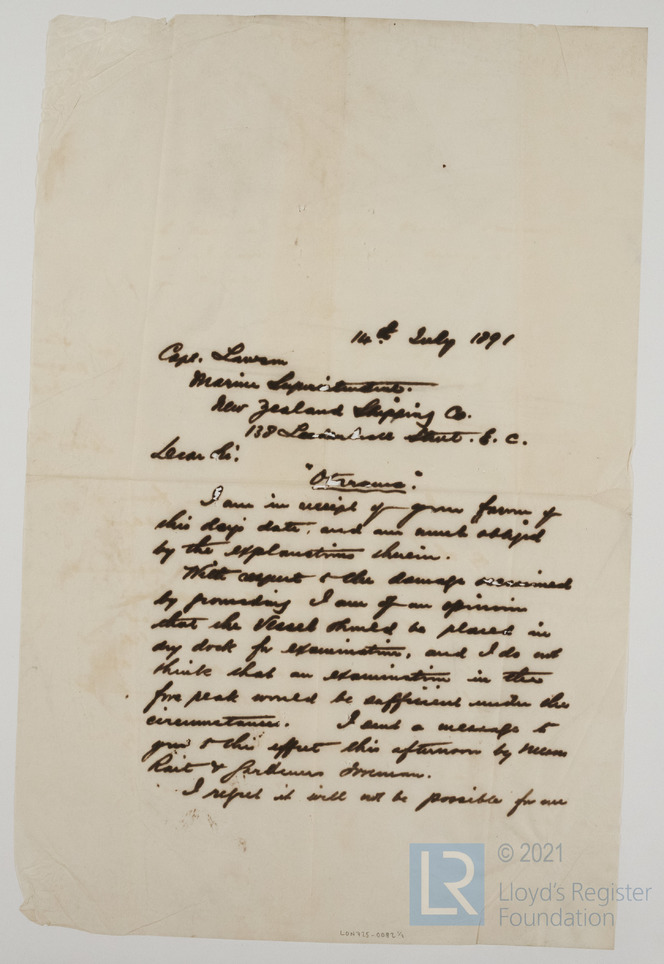 14th July 1891
Capt. Lawson
Marine Superintendent.
New Zealand Shipping Co.
138 Leadenhall Street. E. C.
Dear Sir.
"Oterama".
I am in receipt of your favor of
this day's date, and am much obliged
by the explanations therein.
With respect to the damage sustained
by grounding I am of an opinion
that the vessel should be placed in
dry dock for examination, and I do not
think that an examination in the
fore peak would be sufficient under the
circumstances. I sent a message to
you to this effect this afternoon by Messrs
Rait & Gardeners foreman.
I regret it will not be possible for me
© 2021
LR
Lloyd's Register
Foundation
LON725-0082 1/2